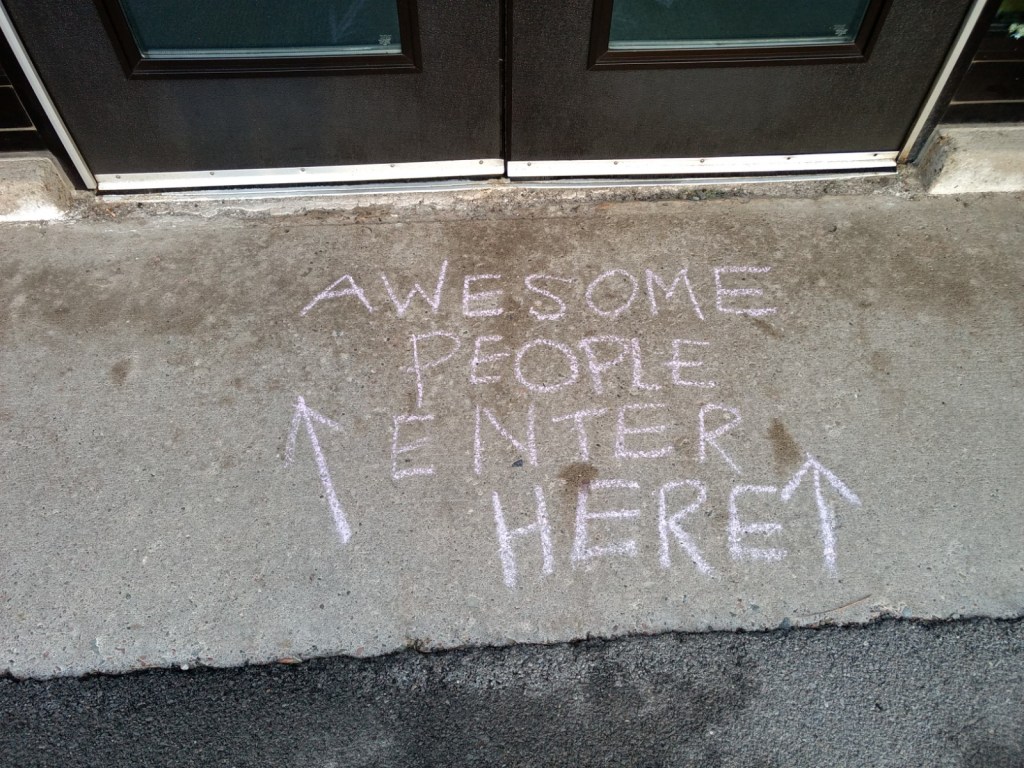 AWESOME
PEOPLE
ENTER
HERE